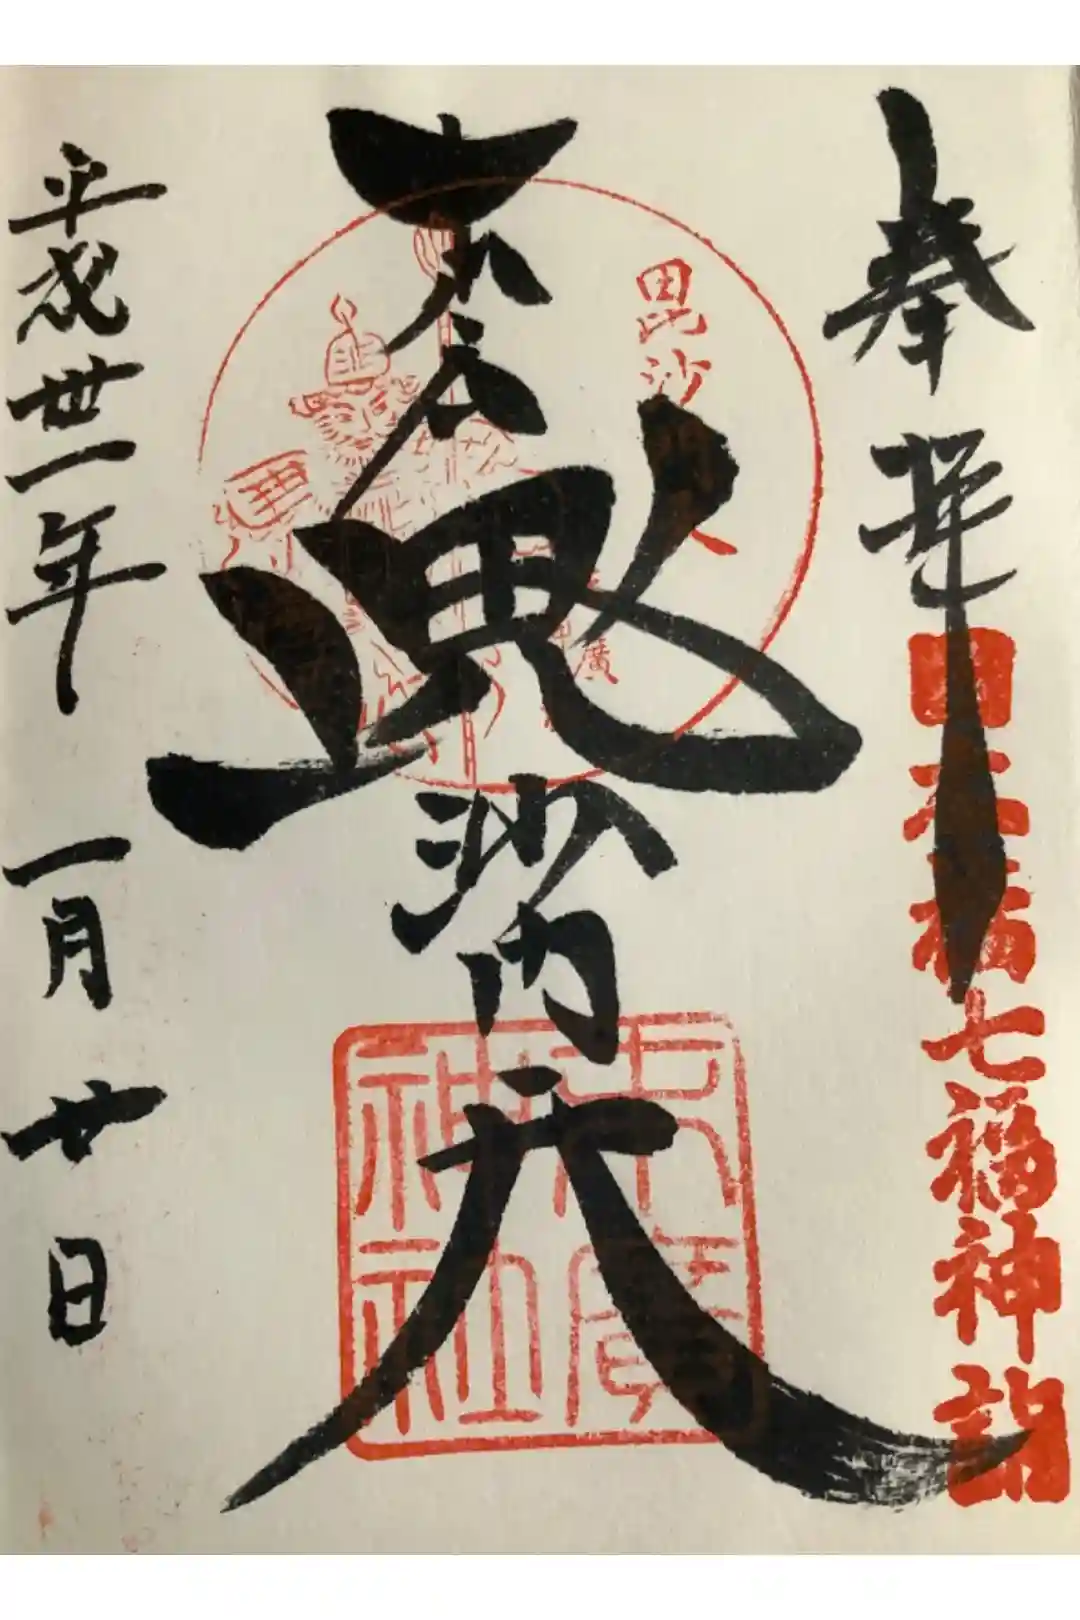 奉拝
日本橋七福神詣
末廣
毘沙門天
毘沙
天
廣
末廣神社
平成卅一年 一月廿日